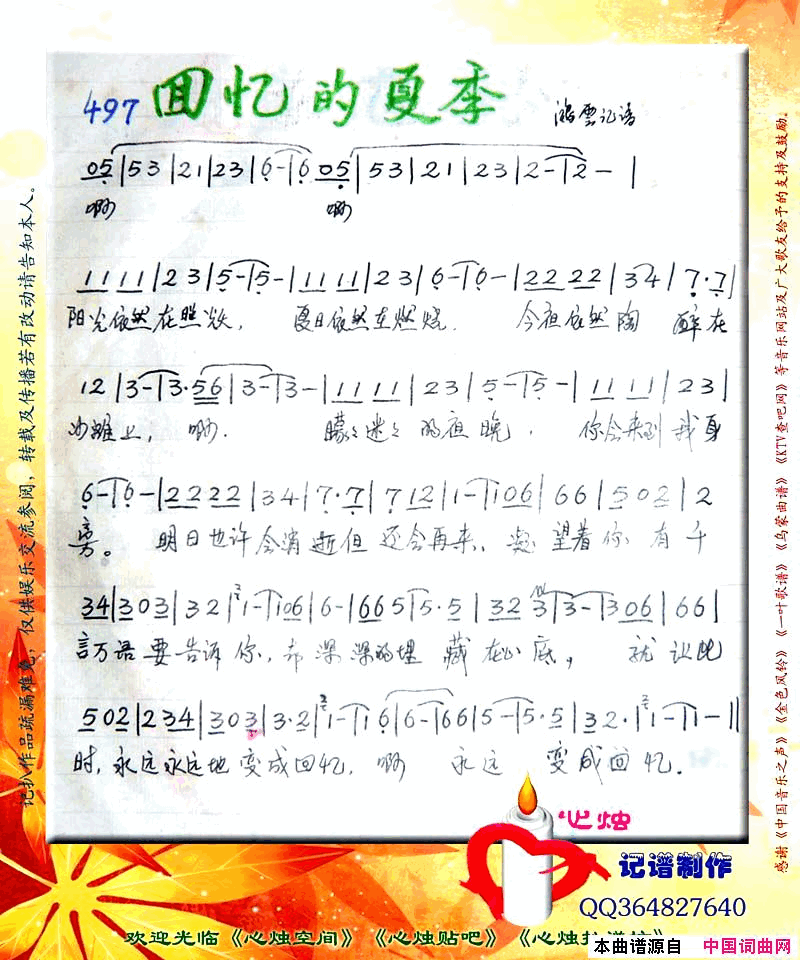 497 回忆的夏季 记谱
05|53|21|23|6-|6 05|53|21|23|2-|2-|
啊 啊
1111|23|5-|5-|1111|23|6-|6-|2222|34|7·7|
阳光依然在照耀, 夏日依然在燃烧. 今夜依然陶醉在
12|3-|3·56|3-|3-|1111|23|5-|5-|1111|23|
沙滩上, 啊. 朦々迷々的夜晚, 你会来到我身
6-|6-|2222|34|7·7|712|1-|106|66|502|2
旁。 明日也许会消逝但还会再来、凝望着你有千
34|303|32|1-|106|6-|665|5·5|32 3|3-|306|66|
言万语要告诉你, 却深深的埋藏在心底, 就让此
502|234|303|3·2|1-|16|6-|66|5-|5·5|32·|1-|1-||
时,永远永远地变成回忆, 啊 永远 变成回忆.
记扒作品疏漏难免，仅供娱乐交流参阅，转载及传播若有改动请告知本人。
感谢《中国音乐之声》《金色风铃》《一叶歌谱》《乌蒙曲谱》《KTV查吧网》等音乐网站及广大歌友给予的支持及鼓励。
心烛
记谱制作
QQ364827640
欢迎光临《心烛空间》《心烛贴吧》《心烛
本曲谱源自 中国词曲网